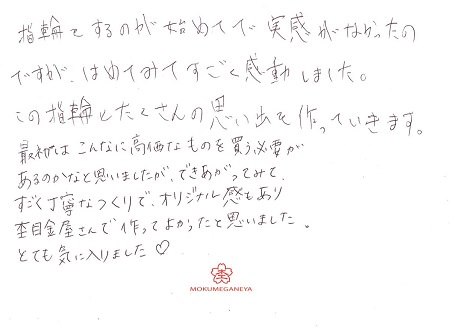 指輪をするのが始めてで実感がなかったの
ですが、はめてみてすごく感動しました。
この指輪とたくさんの思い出を作っていきます。
最初はこんなに高価なものを買う必要が
あるのかなと思いましたが、できあがってみて、
すごく丁寧なつくりで、オリジナル感もあり
杢目金屋さんで作ってよかったと思いました。
とても気に入りました♡
MOKUMEGANEYA